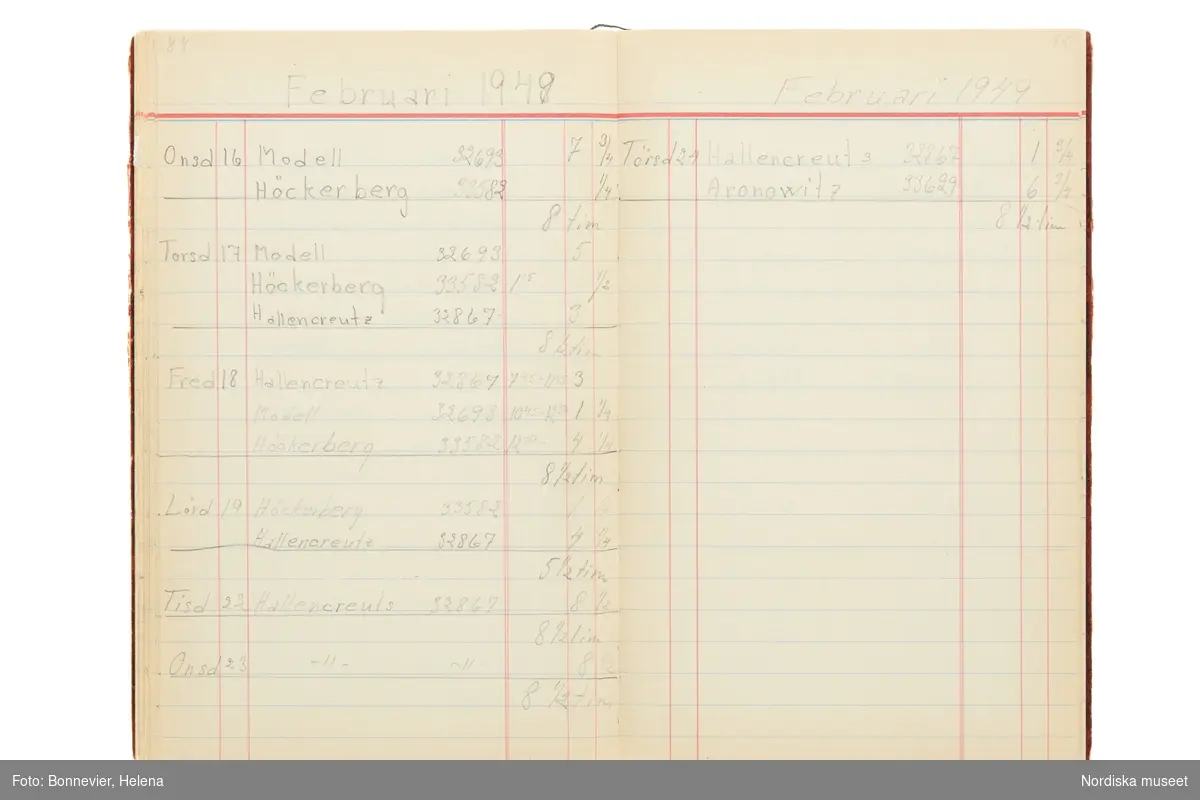 Februari 1949
Onsd 16 Modell 32693 7 3/4
Höckerberg 33582 1/4
8 tim
Torsd 17 Modell 32693 5
Höckerberg 33582 1/2
Hallencreutz 32867 3
8 1/2 tim
Fred 18 Hallencreutz 32867 3
Modell 32693 1 1/4
Höckerberg 33582 4 1/4
8 1/2 tim
Lörd 19 Höckerberg 33582 1
Hallencreutz 32867 4 1/4
5 1/2 tim
Tisd 22 Hallencreuts 32867 8 1/2
8 1/2 tim
Onsd 23 -"- -"- 8
8 1/2 tim
Februari 1949
Törsd 24 Hallencreuts 32867 1 3/4
Aronowitz 33629 6
8 1/2 tim
Foto: Bonnevier, Helena
Nordiska museet